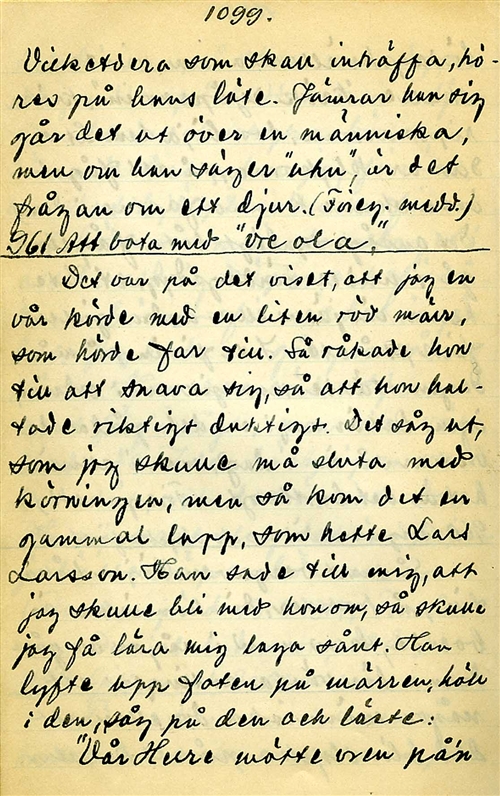 1099.
Vilketdera som skall inträffa, hö-
res på hans läte. Jämrar han sig
går det ut över en människa,
men om han säger "uhu", är det
frågan om ett djur. (Föreg. medd.)
961 Att bota med "vreola."
Det var på det viset, att jag en
vår körde med en liten röd märr,
som hörde far till. Så råkade hon
till att snava sig, så att hon hal-
tade riktigt duktigt. Det såg ut,
som jag skulle må sluta med
körningen, men så kom det en
gammal lapp, som hette Lars
Larsson. Han sade till mig, att
jag skulle bli med honom, så skulle
jag få lära mig laga sånt. Han
lyfte upp foten på märren, höll
i den, såg på den och läste:
"Vår Herre mötte vren på'n